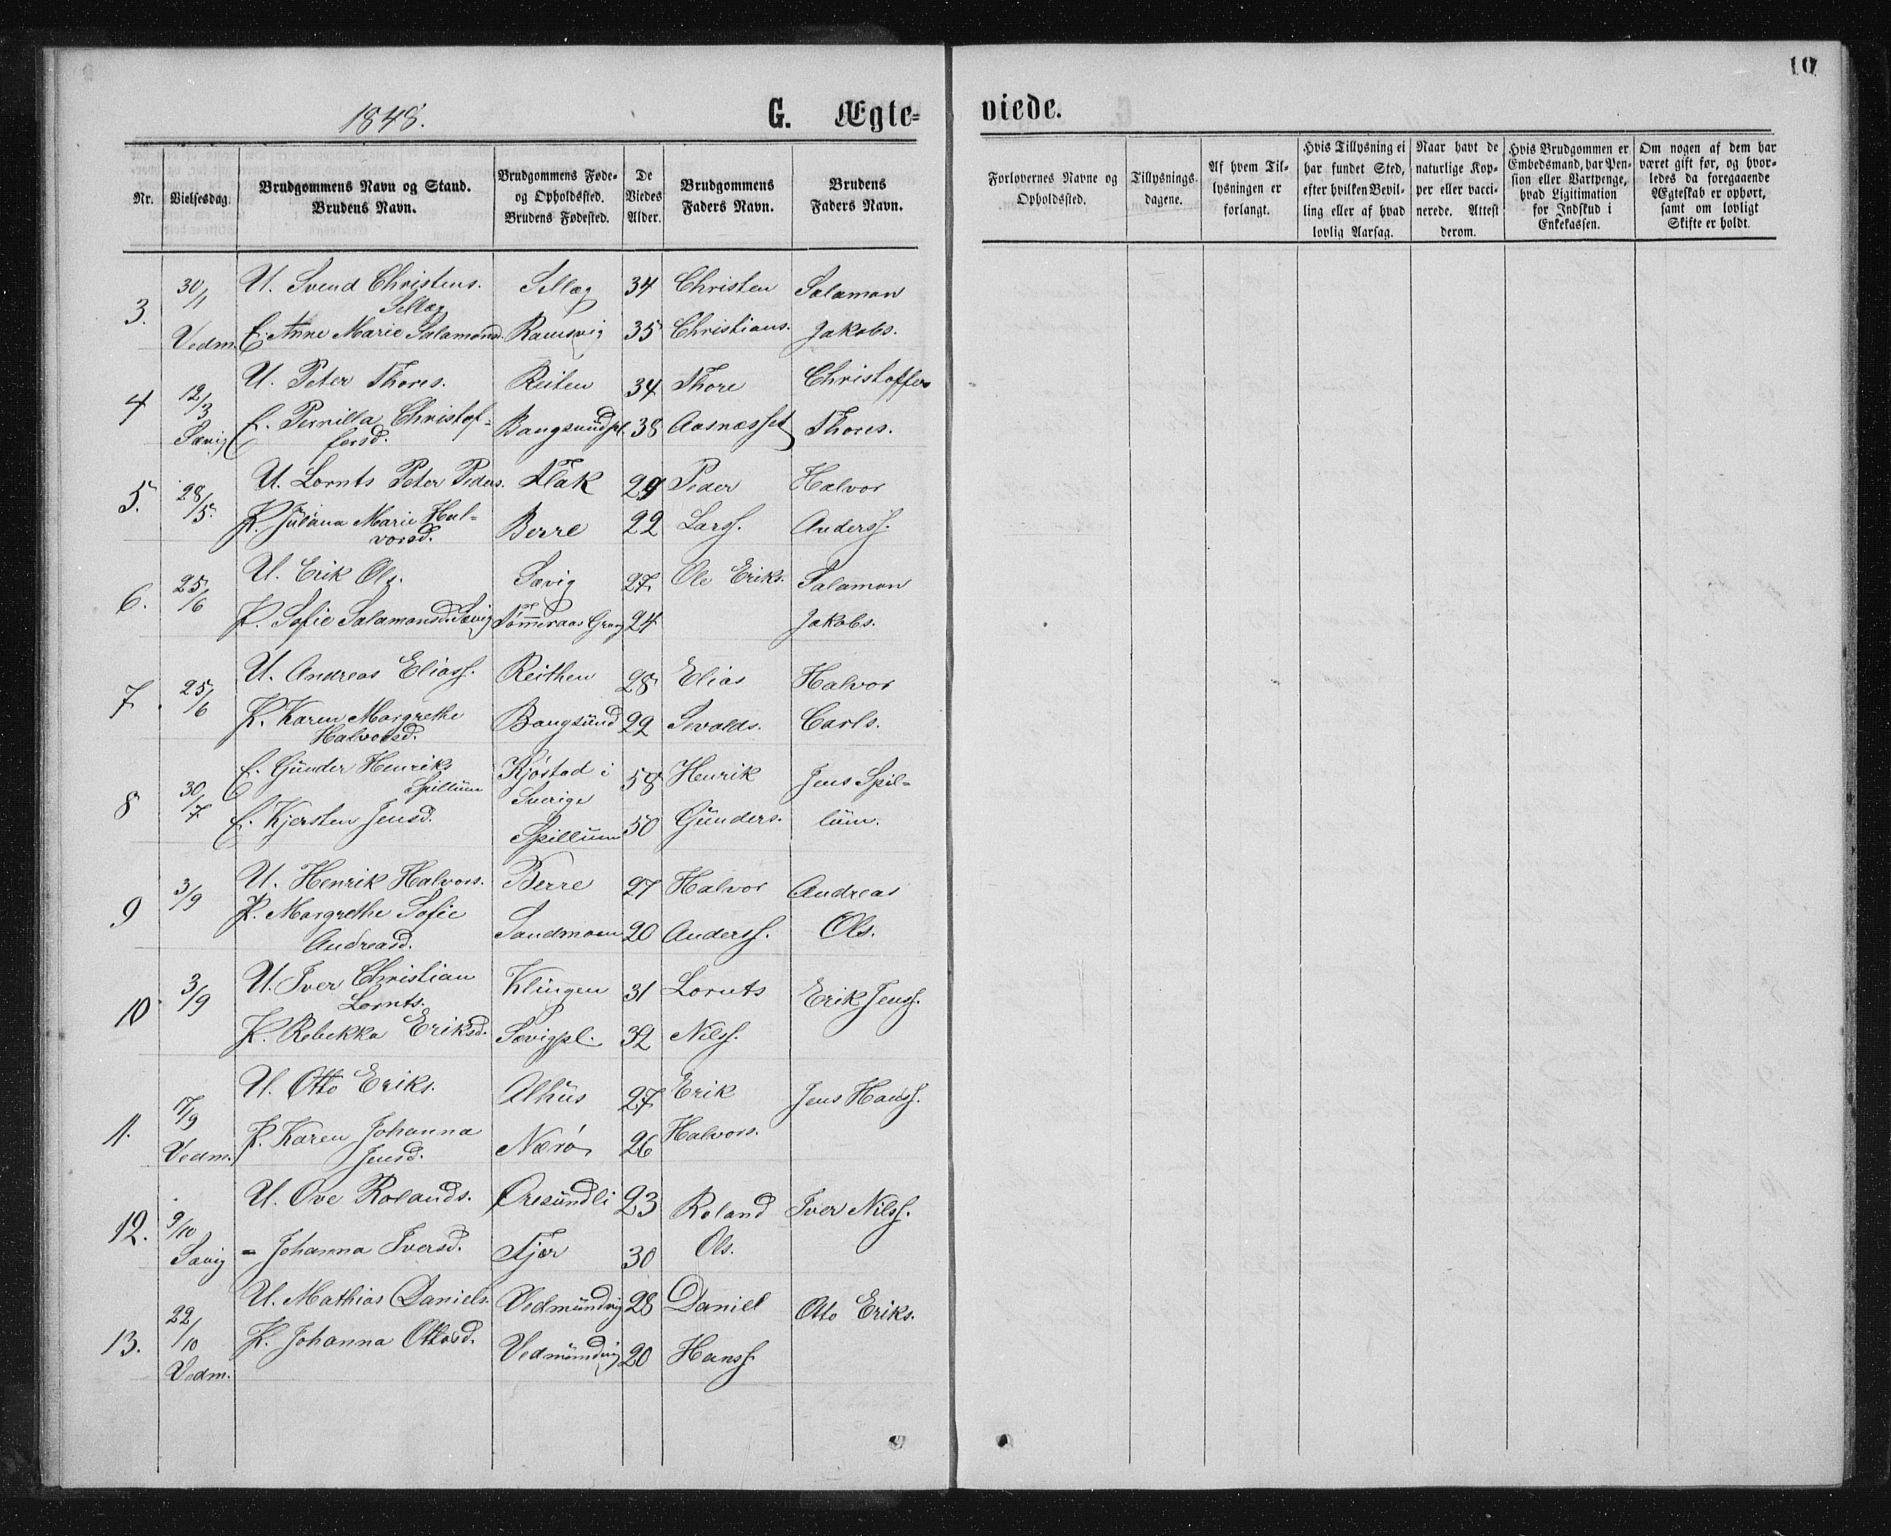 10
1848.
G. Ægte=
viede.
Nr.
Vielsesdag.
Brudgommens Navn og Stand.
Brudens Navn.
Brudgommens Føde-
og Opholdssted.
Brudens Fødested.
De
Viedes
Alder.
Brudgommens
Faders Navn.
Brudens
Faders Navn.
Forlovernes Navne og
Opholdssted.
Tillysnings-
dagene.
Af hvem Til-
lysningen er
forlangt.
Hvis Tillysning ei
har fundet Sted,
efter hvilken Bevil-
ling eller af hvad
lovlig Aarsag.
Naar havt de
naturlige Kop-
per eller vacci-
nerede. Attest
derom.
Hvis Brudgommen er
Embedsmand, har Pen-
sion eller Vartpenge,
hvad Ligitimation
for Indskud i
Enkekassen.
Om nogen af dem har
været gift før, og hvor-
ledes da foregaaende
Ægteskab er ophørt,
samt om lovligt
Skifte er holdt.
3. 30/1 U. Svend Christens. Sellæg 34 Christen Salamon
Sellæg
Vedm. E. Anne Marie Salamonsd. Ramsvig 35 Christians. Jakobs.
4 12/3 U. Peter Thores. Reiten 34 Thore Christoffer
Sævig E. Pernilla Christof- Bangsundpl. 38 Aasnæsset Thores.
fersd.
5. 28/5. U. Lornts Peter Peders. Flak 29 Peder Halvor
P. Juliana Marie Hal- Berre 22 Larss. Anderss.
vorsd.
6. 25/6 U. Erik Ols. Sævig 27 Ole Eriks. Salamon
P. Sofie Salamonsd. Sævig Tømmeraas Grong 24 Jakobs.
7. 25/6 U. Andreas Eliass. Reithen 28 Elias Halvor
P. Karen Margrethe Bangsund 22 Sivalds. Carls.
Halvorsd.
8 30/7 E. Gunder Henriks Kjøstad i 58 Henrik Jens Spil-
Spillum Sverige
E. Kjersten Jensd. Spillum 50 Gunders. lum.
9 3/9 U. Henrik Halvors. Berre 27 Halvor Andreas
P. Margrethe Sofie Sandmoen 20 Anderss. Ols.
Andreasd.
10 3/9 U. Iver Christian Klingen 31 Lornts Erik Jenss.
Lornts.
P. Rebekka Eriksd. Sævigpl. 32 Nilss.
11. 17/9 U. Otto Eriks. Alhus 27 Erik Jens Hanss.
Vedm. P. Karen Johanna Nærø 26 Halvors.
Jensd.
12. 9/10 U. Ove Rolands. Øresundli 23 Roland Iver Nilss.
Sævig - Johanna Iversd. Fjær 30 Ols.
13. 22/10 U. Mathias Daniels. Vedmundvig 28 Daniel Otto Eriks.
Vedm. P. Johanna Ottosd. Vedmundvig 20 Hanss.